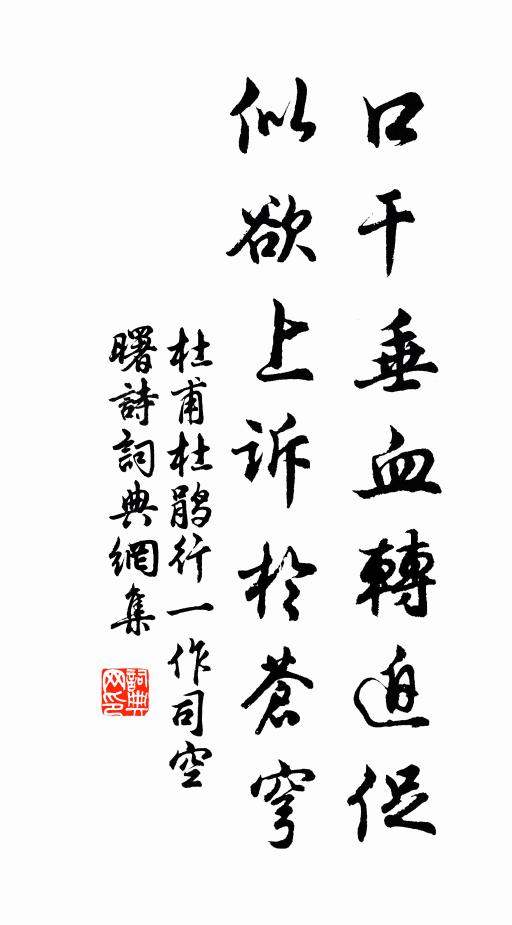 口干垂血轉迫促
似欲上訴於蒼穹
杜甫杜鵑行一作司空
曙詩詞典網集
詞典网印